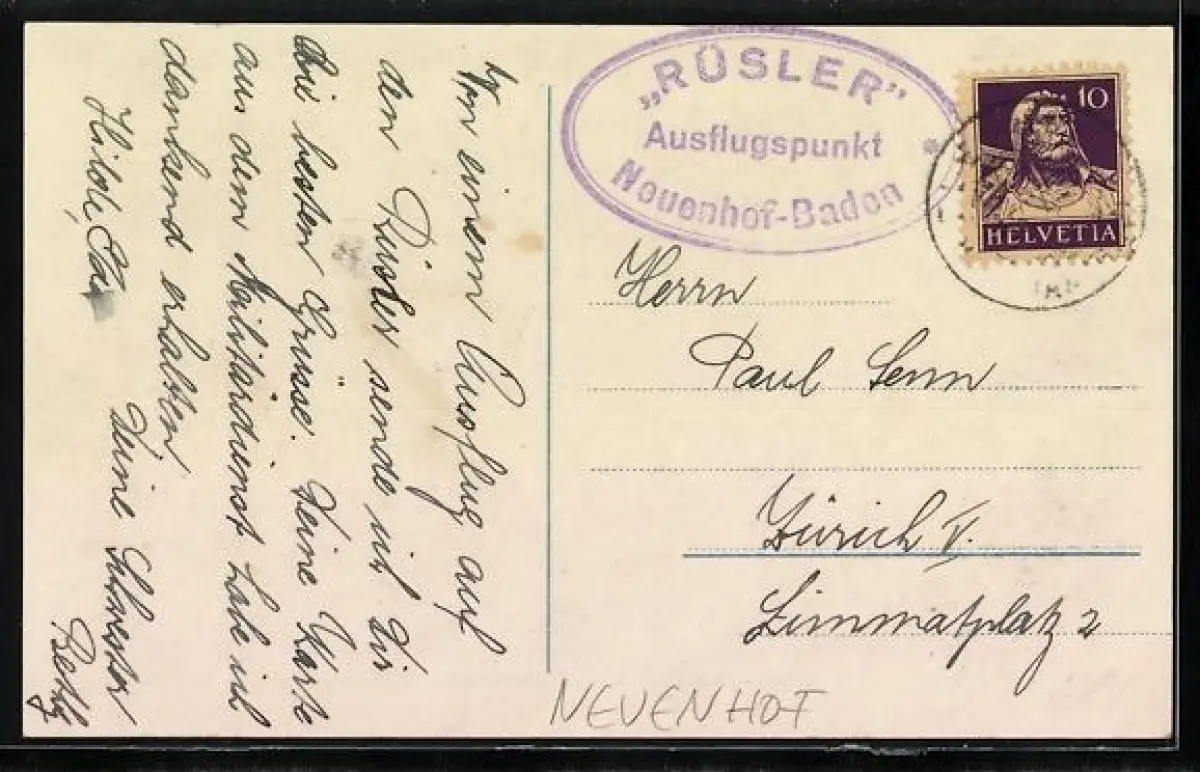 Von einem Ausflug auf
den Rüsler sende ich Dir
die besten Grüsse. Deine Karte
aus dem Militärdienst habe ich
dankend erhalten
Deine Schwester
Hilde,
„RÜSLER"
Ausflugspunkt
Neuenhof-Baden
10
HELVETIA
Herrn
Paul Senn
Zürich V.
Limmatplatz 2
NEUENHOF